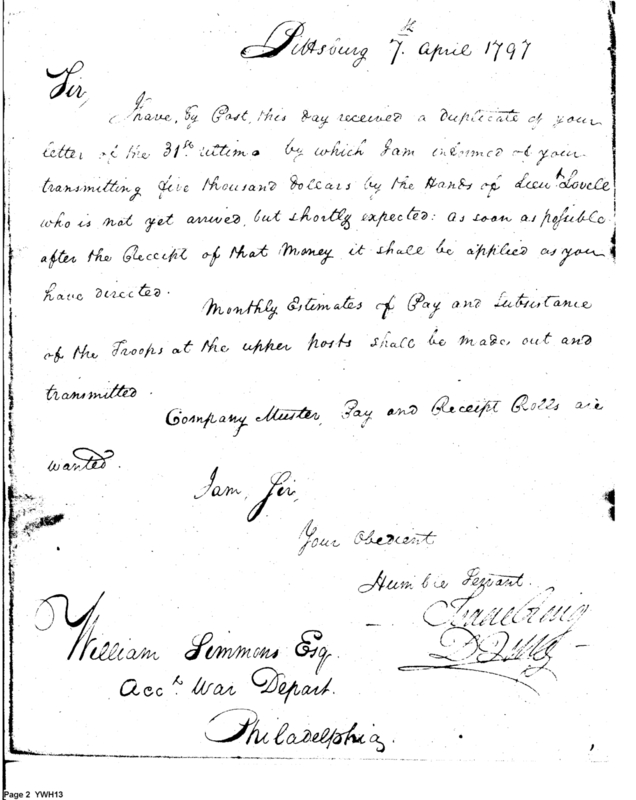 Pittsburg 7th. April 1797
Sir,
I have, by Post, this day received a duplicate of your
letter of the 31st. ultimo by which I am informed of your
transmitting five thousand Dollars by the Hands of Lieut. Lovell
who is not yet arrived, but shortly expected: as soon as possible
after the Receipt of that Money it shall be applied as you
have directed.
Monthly Estimates of Pay and Subsistance
of the Troops at the upper posts shall be made out and
transmitted.
Company Muster, Pay and Receipt Rolls are
wanted.
I am, Sir,
Your Obedient
Humble Servant.
Isaac Craig
D Q M G
William Simmons Esq.
Acct. War Depart.
Philadelphia.
Page 2 YWH13